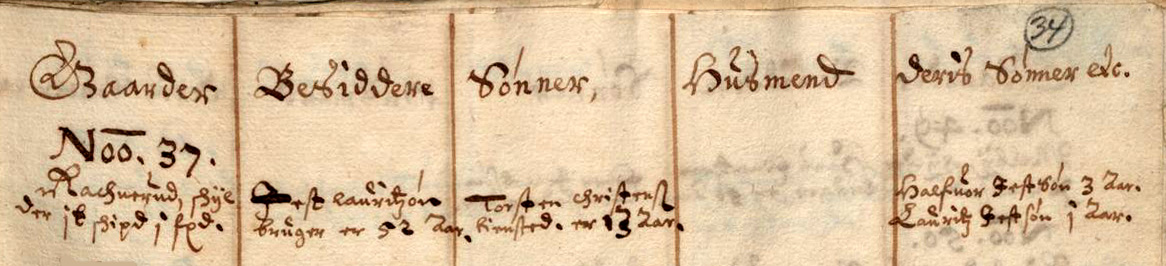 34
Gaarder Besiddere Sønner, Husmend deris Sønner etc.
Noo. 37.
Rachnerud, schyl
der skipd j fxd.
Jest lauritzøn
bruger er 52 Aar.
Torsten christens
tienisted. er 13 Aar.
Halfuor Jestsøn 3 Aar.
Lauritz Jestsøn j Aar.